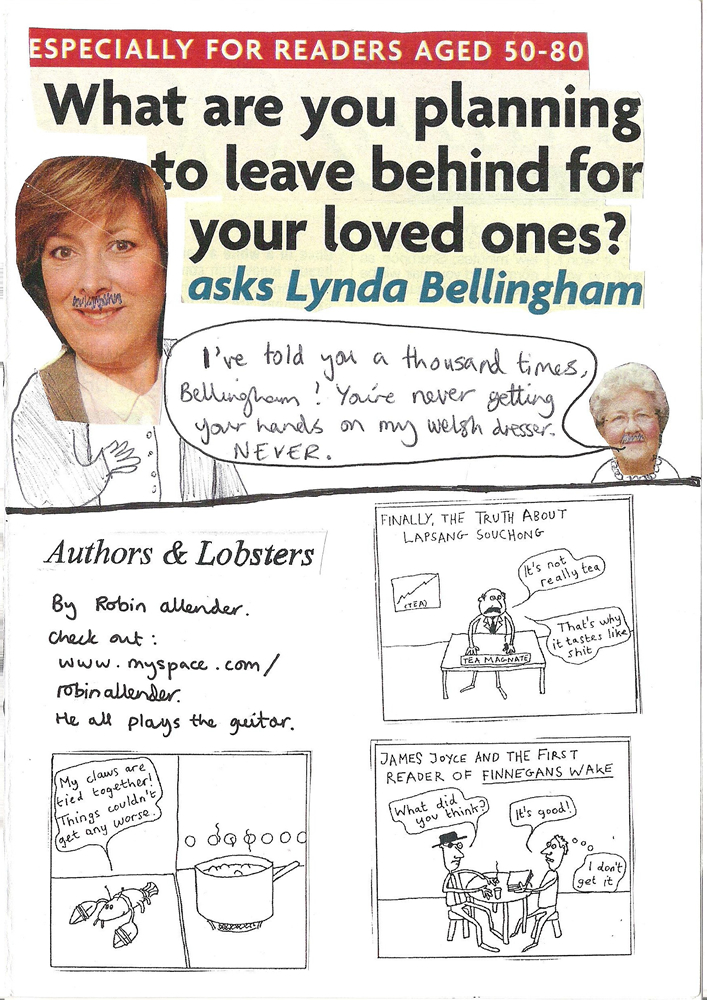 ESPECIALLY FOR READERS AGED 50-80
What are you planning
to leave behind for
your loved ones?
asks Lynda Bellingham
I've told you a thousand times,
Bellingham! You're never getting
your hands on my welsh dresser.
NEVER.
Authors & Lobsters
By Robin allender.
Check out:
www.myspace.com/
robinallender.
He all plays the guitar.
FINALLY, THE TRUTH ABOUT
LAPSANG SOUCHONG
It's not
really tea
(TEA)
That's why
it tastes like
shit
TEA MAGNATE
My claws are
tied together!
Things couldn't
get any worse.
JAMES JOYCE AND THE FIRST
READER OF FINNEGANS WAKE
What did
you think?
It's good!
I don't
get it